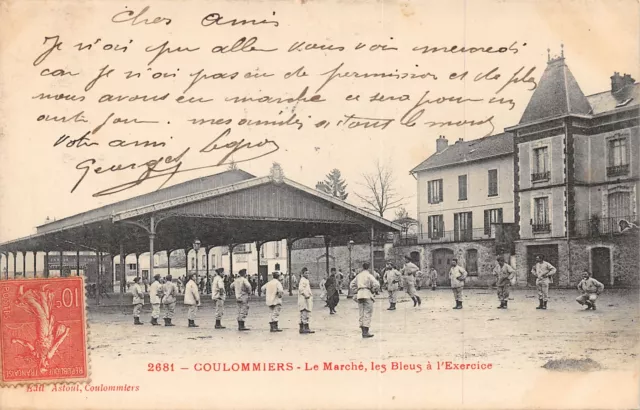 Chers Amis
Je n'ai pu aller vous voir mercredi
car je n'ai pas eu de permission et de plus
nous avons eu marche ce sera pour un
autre jour. mes amitiés à tout le monde
Votre ami
Georges
10
2681 - COULOMMIERS - Le Marché, les Bleus à l'Exercice
Edit. Astoul, Coulommiers